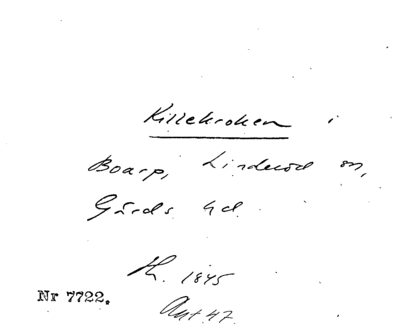 Killekroken i
Boarp, Linderöd sn,
Gärds hd
Th. 1845
Nr 7722.
Ant 47